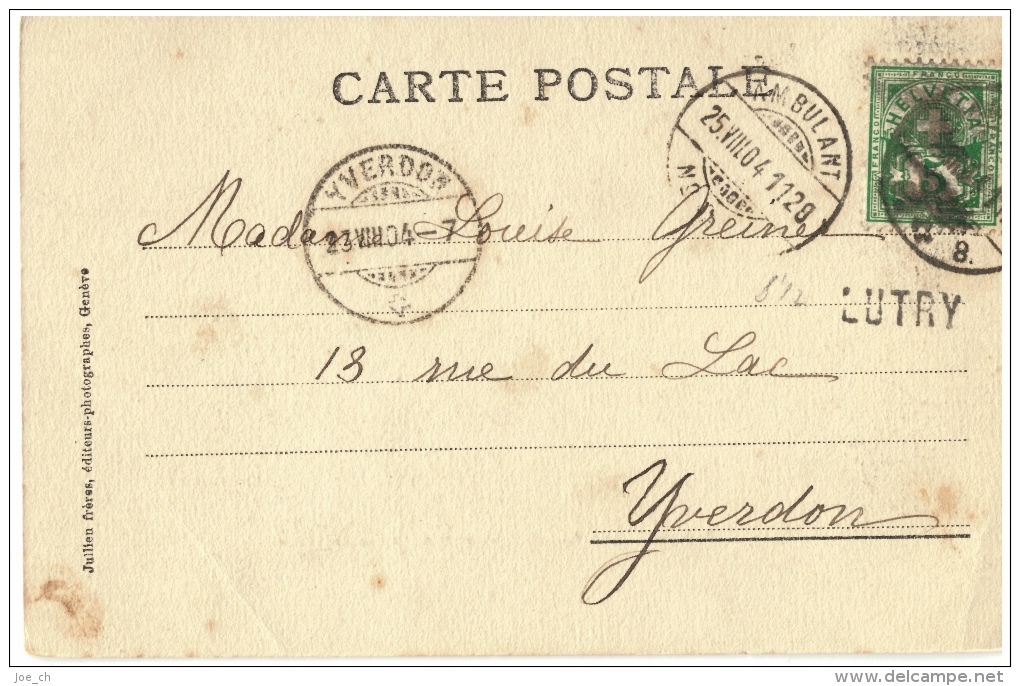 CARTE POSTALE
AMBULANT
25.VIII.04 1120
FRANCO
HELVETIA
FRANCO
FRANCO
5
8.
YVERDON
23.VIII.04 - 7
Madame Louise Greiner
LUTRY
13 rue du Lac
Yverdon
Jullien frères, éditeurs-photographes, Genève
joe_ch
www.delcampe.net